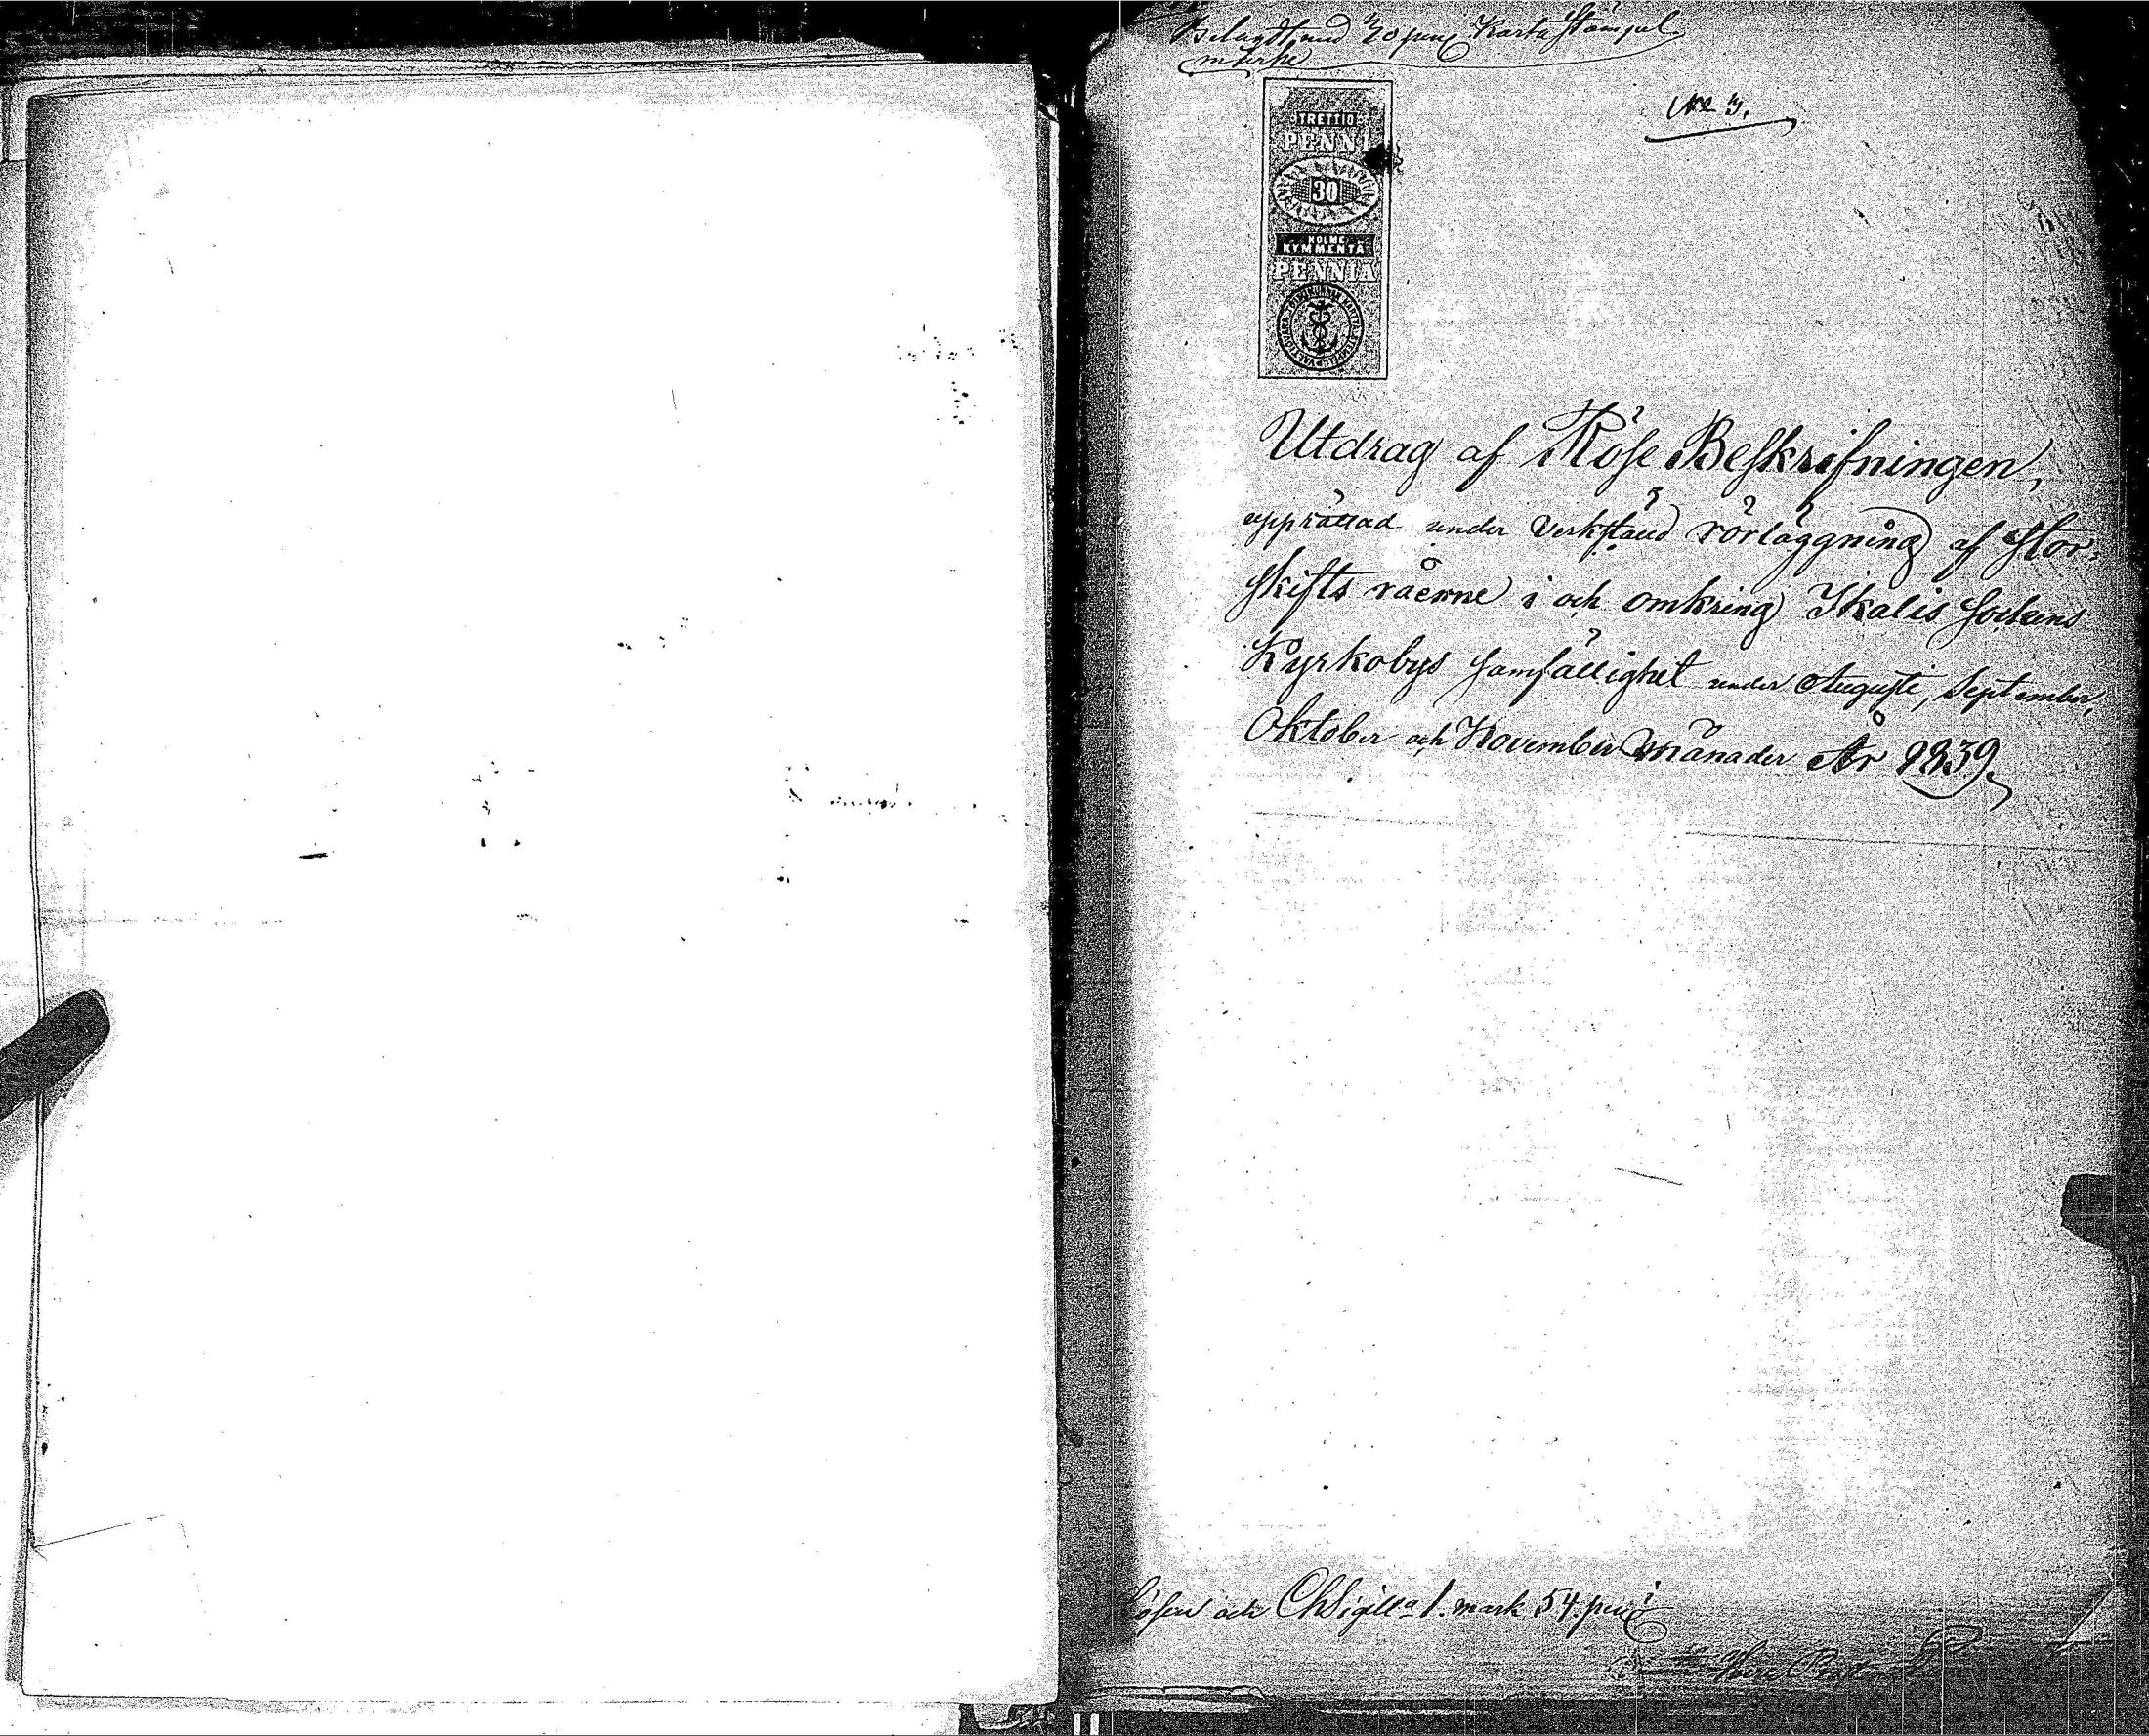 Belagdt med 30 penni Karta Stämpel
märke
No 3.
TRETTIO
PENNI
30
KOLME
KYMMENTÄ
PENNIÄ
Utdrag af Röse Beskrifningen,
upprättad under verkstäld rörläggning af Stor-
skifts råerne i och omkring Ikalis Sockens
Kyrkobys samfällighet under Augusti, September,
Oktober och November Månader År 1839.
Lösen och Ch Sigilla 1. mark 54. penni